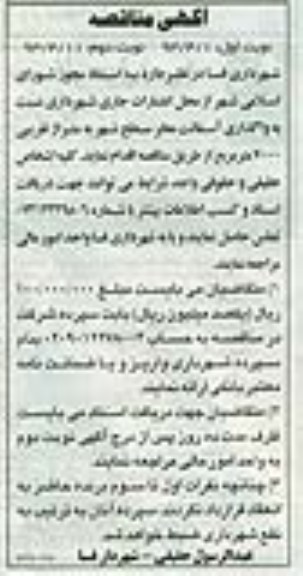 آگهی مناقصه
نوبت اول: نوبت دوم:
شهرداری فسا در نظر دارد به استناد مجوز شورای
اسلامی شهر از محل اعتبارات جاری شهرداری نسبت
به واگذاری آسفالت معابر سطح شهر به متراژ تقریبی
مترمربع از طریق مناقصه اقدام نماید. کلیه اشخاص
حقیقی و حقوقی واجد شرایط می توانند جهت دریافت
اسناد و کسب اطلاعات بیشتر با شماره
تماس حاصل نمایند و یا به شهرداری فسا واحد امور مالی
مراجعه نمایند.
۱) متقاضیان می بایست مبلغ ۱۰۰/۰۰۰/۰۰۰
ریال (یکصد میلیون ریال) بابت سپرده شرکت
در مناقصه به حساب بنام
سپرده شهرداری واریز و یا ضمانت نامه
معتبر بانکی ارائه نمایند.
۲) متقاضیان جهت دریافت اسناد می بایست
ظرف مدت ده روز پس از درج آگهی نوبت دوم
به واحد امور مالی مراجعه نمایند.
۳) چنانچه نفرات اول تا سوم برنده حاضر به
انعقاد قرارداد نگردند سپرده آنان به ترتیب به
نفع شهرداری ضبط خواهد شد.
عبدالرسول حقیقی - شهردار فسا